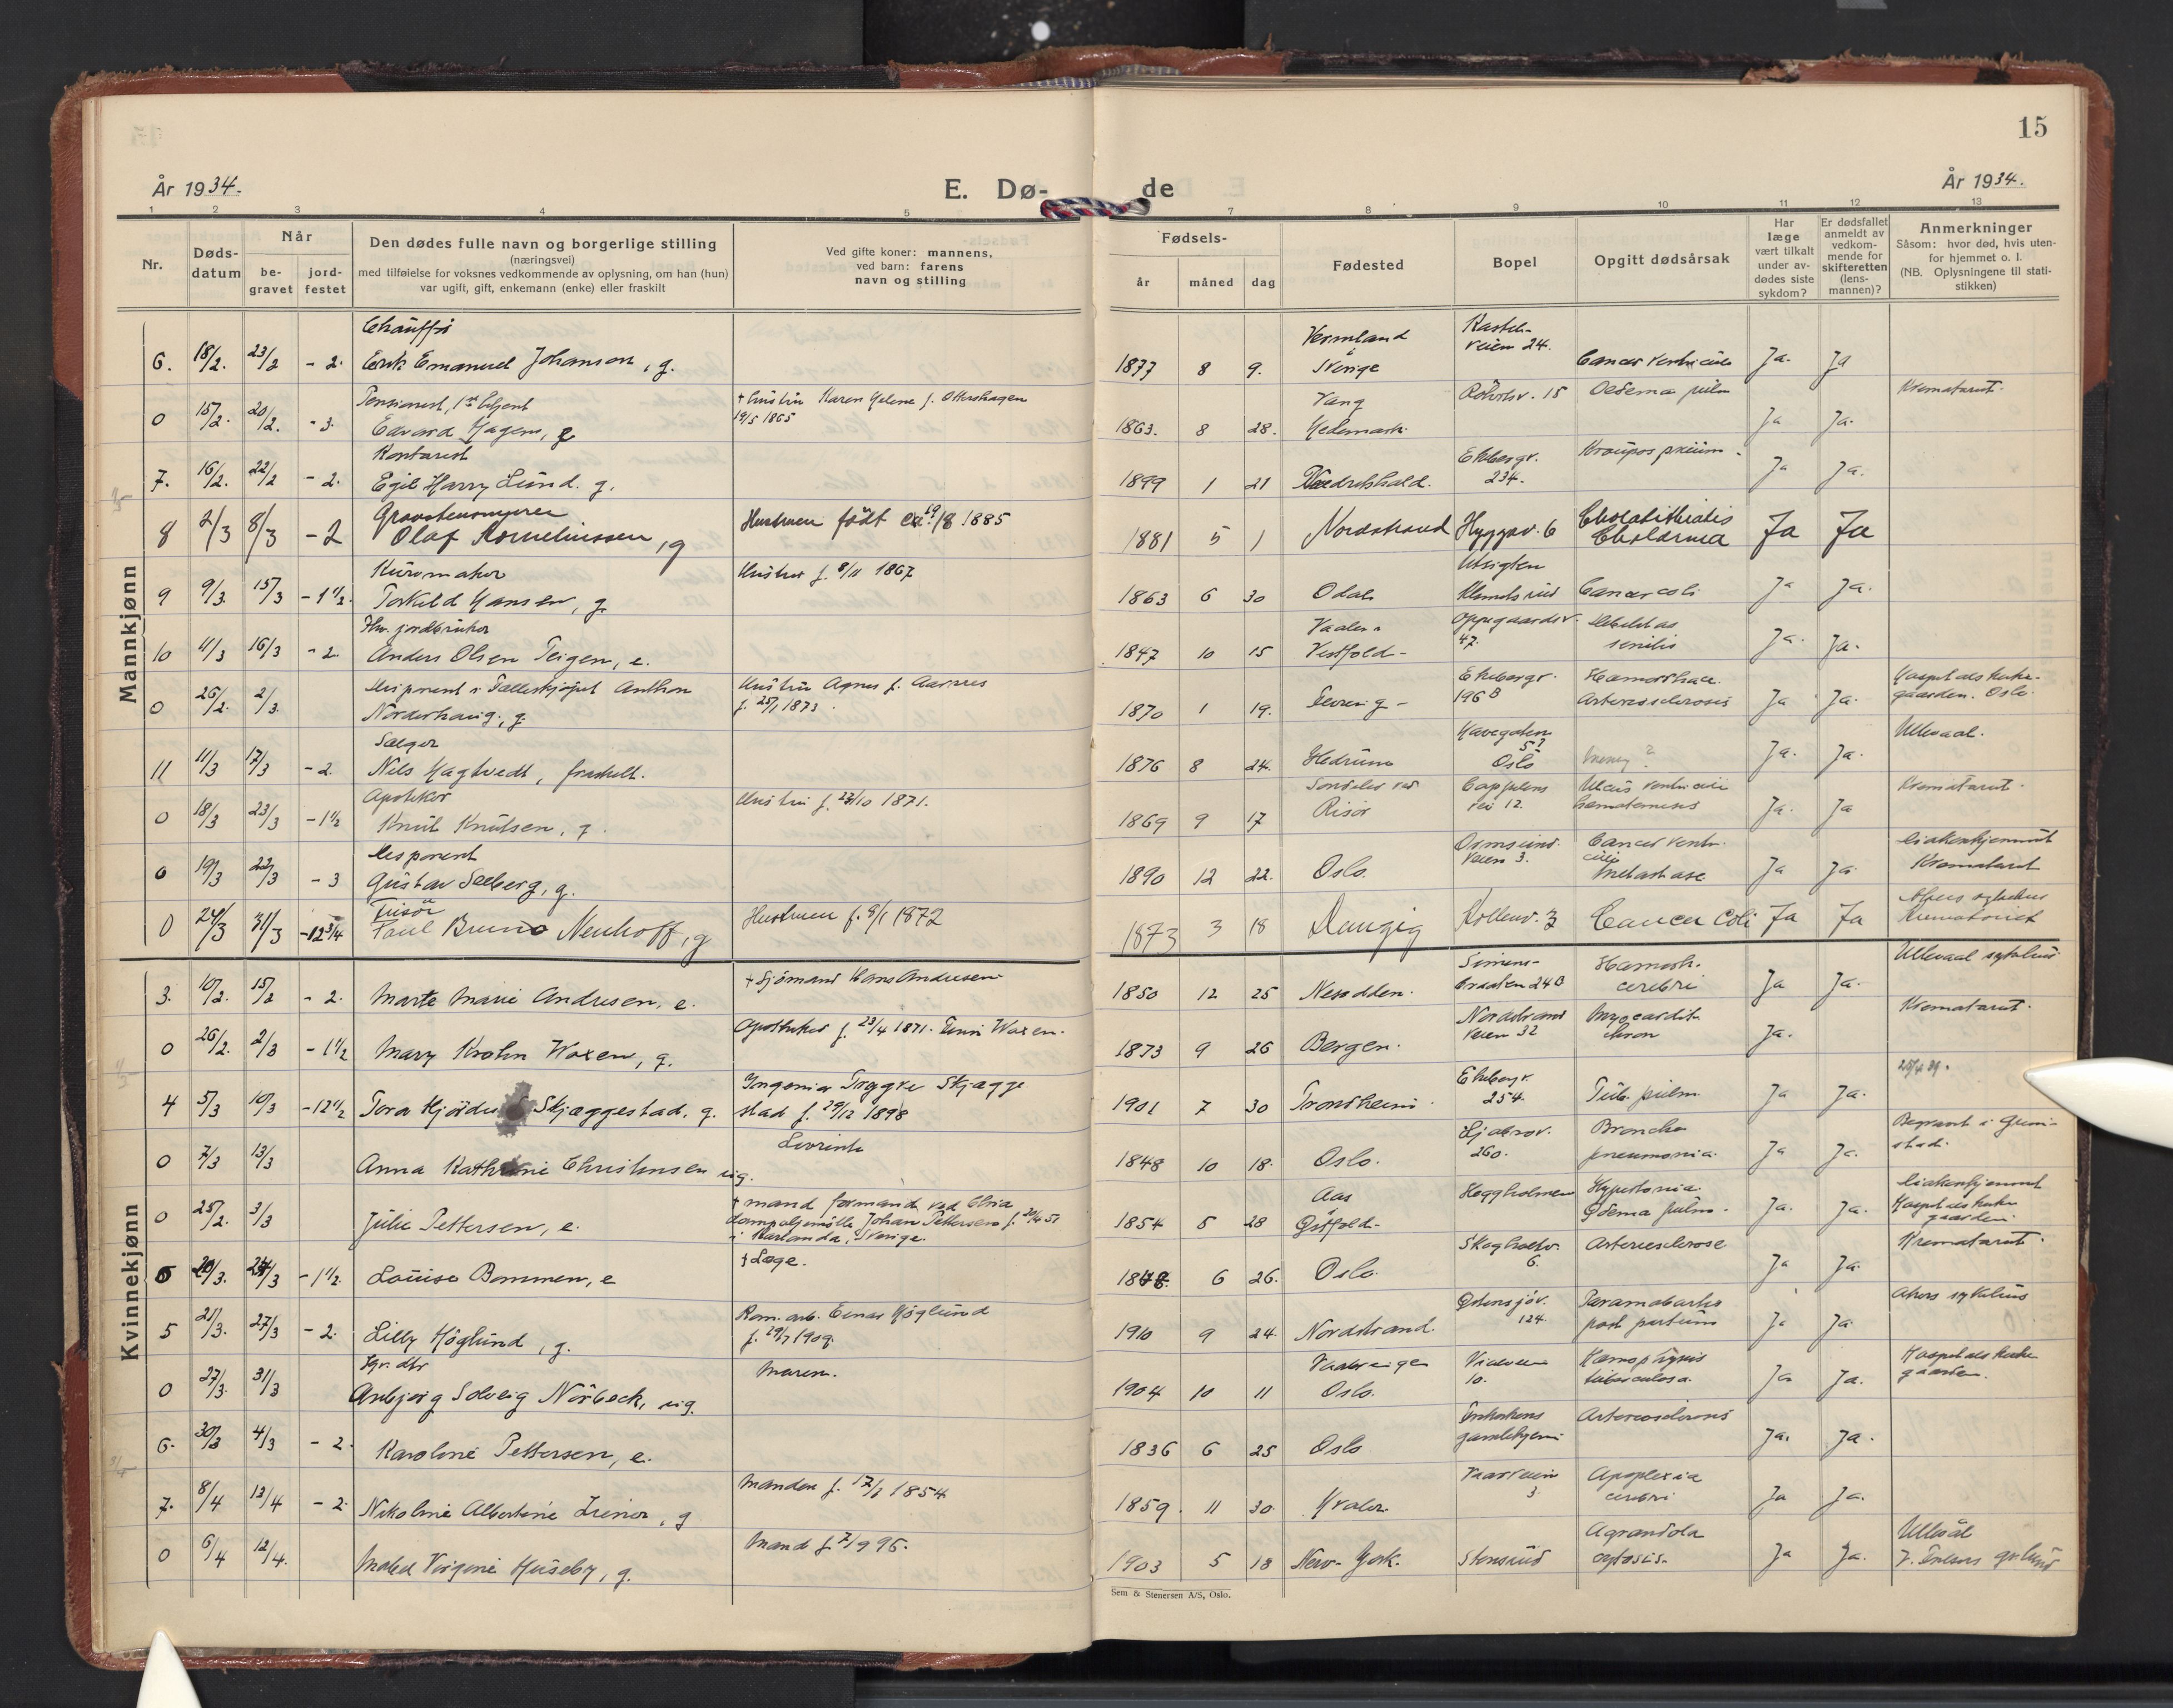 15
År 1934.
E. Dø-
de
År 1934.
1 2 3 4 5 7 8 9 10 11 12 13
Nr.
Døds-
datum
Når
be-
gravet
jord-
festet
Den dødes fulle navn og borgerlige stilling
(næringsvei)
med tilføielse for voksnes vedkommende av oplysning, om han (hun)
var ugift, gift, enkemann (enke) eller fraskilt
Ved gifte koner: mannens,
ved barn: farens
navn og stilling
Fødsels-
år måned dag
Fødested
Bopel
Opgitt dødsårsak
Har
læge
vært tilkalt
under av-
dødes siste
sykdom?
Er dødsfallet
anmeldt av
vedkom-
mende for
skifteretten
(lens-
mannen)?
Anmerkninger
Såsom: hvor død, hvis uten-
for hjemmet o. l.
(NB. Oplysningene til stati-
stikken)
Mannkjønn
Chauffør Vermland
6. 18/2. 23/2 - 2. Erik Emanuel Johanson, g. 1877 8 9. i Sverige veien 24. Cancer ventriculi Ja. Ja
Pensionert, + hustru Karen Helene f. Vang 15 Oedema pulm Krematoriet.
0 15/2. 20/2. - 3. Edvard Hagen, g 19/5 1865 1863. 8 28. Hedemark. Ja Ja.
Kontorist Ekebergv.
7. 16/2. 22/2 - 2. Egil Harry Lund. g. 1899 1 21 Fredrikshald. 234. Ja Ja.
8 2/3 8/3 - 2 Olaf Korneliussen, g Hustruen født 1885 1881 5 1 Nordstrand 6 Ja Ja
Hustru f. 8/11 1867 Utsigten
9 9/3. 15/3 - 1 1/2. Torkild Hansen, g. 1863 6 30 Odal Cancer coli Ja Ja.
Fhv. jordbruker Vaale i Oppegaardsv.
10 11/3 16/3 - 2 Anders Olsen Teigen, e. 1847 10 15 Vestfold - 47. senilis Ja. Ja.
Disponent i Fælleskjøpet Anthon Hustru Agnes f. Ekebergv.
0 26/2. 2/3. Norderhaug, g. f. 25/1 1873. 1870 1 19. 196 B Arteriosclerosis Ja Ja. Oslo.
Selger Ullevaal.
11 11/3 17/3 - 2. Nils Haghvedt, fraskilt. 1876 8 24. Hedrum Oslo Ja. Ja.
Apoteker Hustru f. 1871. Søndeled ved Cappelens Ulcus ventriculi Krematoriet.
0 18/3 23/3 - 1 1/2 Knut Knutsen, g. 1869 9 17 Risør vei 12. Ja. Ja
Disponent Ormsund- Cancer ventri-
0 19/3 22/3 - 3 Gustav Seeberg, g. 1890 12 22. Oslo. veien 3. culi Metastase Ja Ja Krematoriet
Frisør Akers sykehus
0 24/3 31/3 - 12 3/4 Paul Bruno Neuhoff, g Hustruen f. 8/1 1872 1873 3 18 Danzig 3 Cancer Coli Ja Ja Krematoriet
Kvinnekjønn
+ Sjømand Hans Andresen Simens- Hæmorh. Ullevaal sykehus
3. 10/2. 15/2 - 2. Marte Marie Andresen, e. 1850 12 25 Nesodden. braaten 24 B cerebri Ja Ja.
Apotheker f. 23/4 1871. Waxen. Nordstrand Myocardit. Krematoriet.
0 26/2. 2/3 - 1 1/2 Mary Krohn Waxen, g. 1873 9 26 Bergen. veien 32 chron Ja.
Ingeniør Trygve Skjægge Ekebergv.
4 5/3 10/3 - 12 1/2 Tora Hjördis Skjæggestad. g. stad f. 29/12 1898 1901 7 30 Trondheim. 254. Tub. pulm. Ja Ja.
Ljabrov. Broncho Begravet i Grim-
0 7/3 13/3 Anna Kathrine Christensen ug. 1848 10 18. Oslo. 260. pneumonia. Ja Ja. stad.
+ mand formand ved Chria Aas Heggholmen Hypertonia.
0 25/2. 3/3 Julie Pettersen, e. dampoljemølle Johan Pettersen f. i Karlanda, Sverige. 1854 5 28 Østfold - Ødema pulm. Ja. Ja.
+ Læge. Skogholtv. Arteriosclerose Krematoriet.
- 1 1/2. Louise Bommen, e 6 26. Oslo. 6. Ja Ja.
Einar Høglund Østensjøv. Akers sykehus
5 21/3. 27/3 - 2. Lilly Höglund, g. f. 29/7 1909. 1910 9 24. Nordstrand. 124. post partum Ja Ja
Vaalerengen Hæmoptysis
0 27/3. 31/3 Anbjørg Solveig Nörbeck, ug. 1904 10 11 Oslo. 10. tuberculosa. Ja Ja.
Arteriosclerosis
6. 30/3 4/3 - 2. Karoline Pettersen, e. 1836 6 25 Oslo gamlehjem Ja. Ja.
Manden f. 1854 Vaarveien Apoplexia
7. 8/4 13/4 - 2. Nikoline Albertine g 1859. 11 30. Hvaler. 3. cerebri Ja Ja.
Mand f. 7/9 96. Ullevål
0 6/4 12/4. Mabel Virginie Huseby, g. 1903 5 18 New-York. Stensrud Ja Ja.
Sem & Stenersen A/S, Oslo.